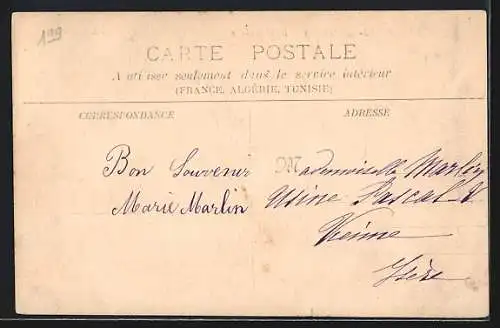 199
CARTE POSTALE
A utiliser seulement dans le service intérieur
(FRANCE, ALGÉRIE, TUNISIE)
CORRESPONDANCE
ADRESSE
Bon Souvenir
Marie Marlin
Mademoiselle Marlin
Usine Pascal V
Vienne
Isère